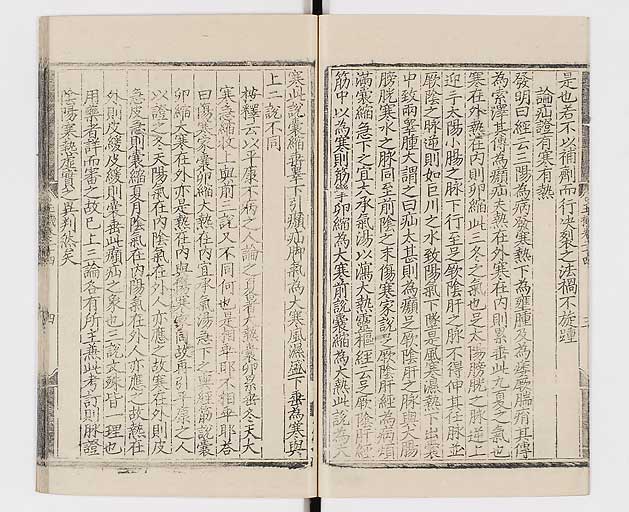 是也若不以補劑而行決裂之法禍不旋踵
論疝證有寒有熱
發明曰經云三陽為病發寒熱下為癰腫及為痿厥腨㾓其傳
為索澤其傳為㿗疝夫熱在外寒在內則累垂此九夏之氣也
寒在外熱在內則卵縮此三冬之氣也足太陽膀胱之脉逆上
迎手太陽小腸之脉下行至足厥陰肝之脉不得伸其任脉並
厥陰之脉逆則如巨川之水致陽氣下墜是風寒濕熱下出囊
中致兩睾腫大謂之曰疝太甚則為㿗足厥陰肝之脉與太陽
膀胱寒水之脉同至前陰之末傷寒家說足厥陰肝經為病煩
滿囊縮急下之宜大承氣湯以瀉大熱靈樞經云足厥陰肝經
筋中以為寒則筋攣卵縮為大寒前說囊縮為大熱此說為大
寒此說囊縮垂睾下引㿗疝脚氣為大寒風濕盛下垂為寒與
上二說不同
釋云以平康不病之人論之夏暑大熱囊卵累垂冬天大
寒急縮收上與前三說又不同何也是相乎耶不相乎耶答
曰傷寒家囊卵縮大熱在內宜承氣湯急下之與經筋說囊
卵縮大寒在外亦是熱在內與傷寒家同故再引平康之人
以證之冬天陽氣在內陰氣在外人亦應之故寒在外則皮
急皮急則囊縮夏月陰氣在內陽氣在外人亦應之故熱在
外則皮緩皮緩則囊垂此㿗疝之象也三說文殊皆一理也
用藥者詳而審之故巳上三論各有所主無此考訂則脉證
陰陽寒熱虛實之異判然矣
四
三